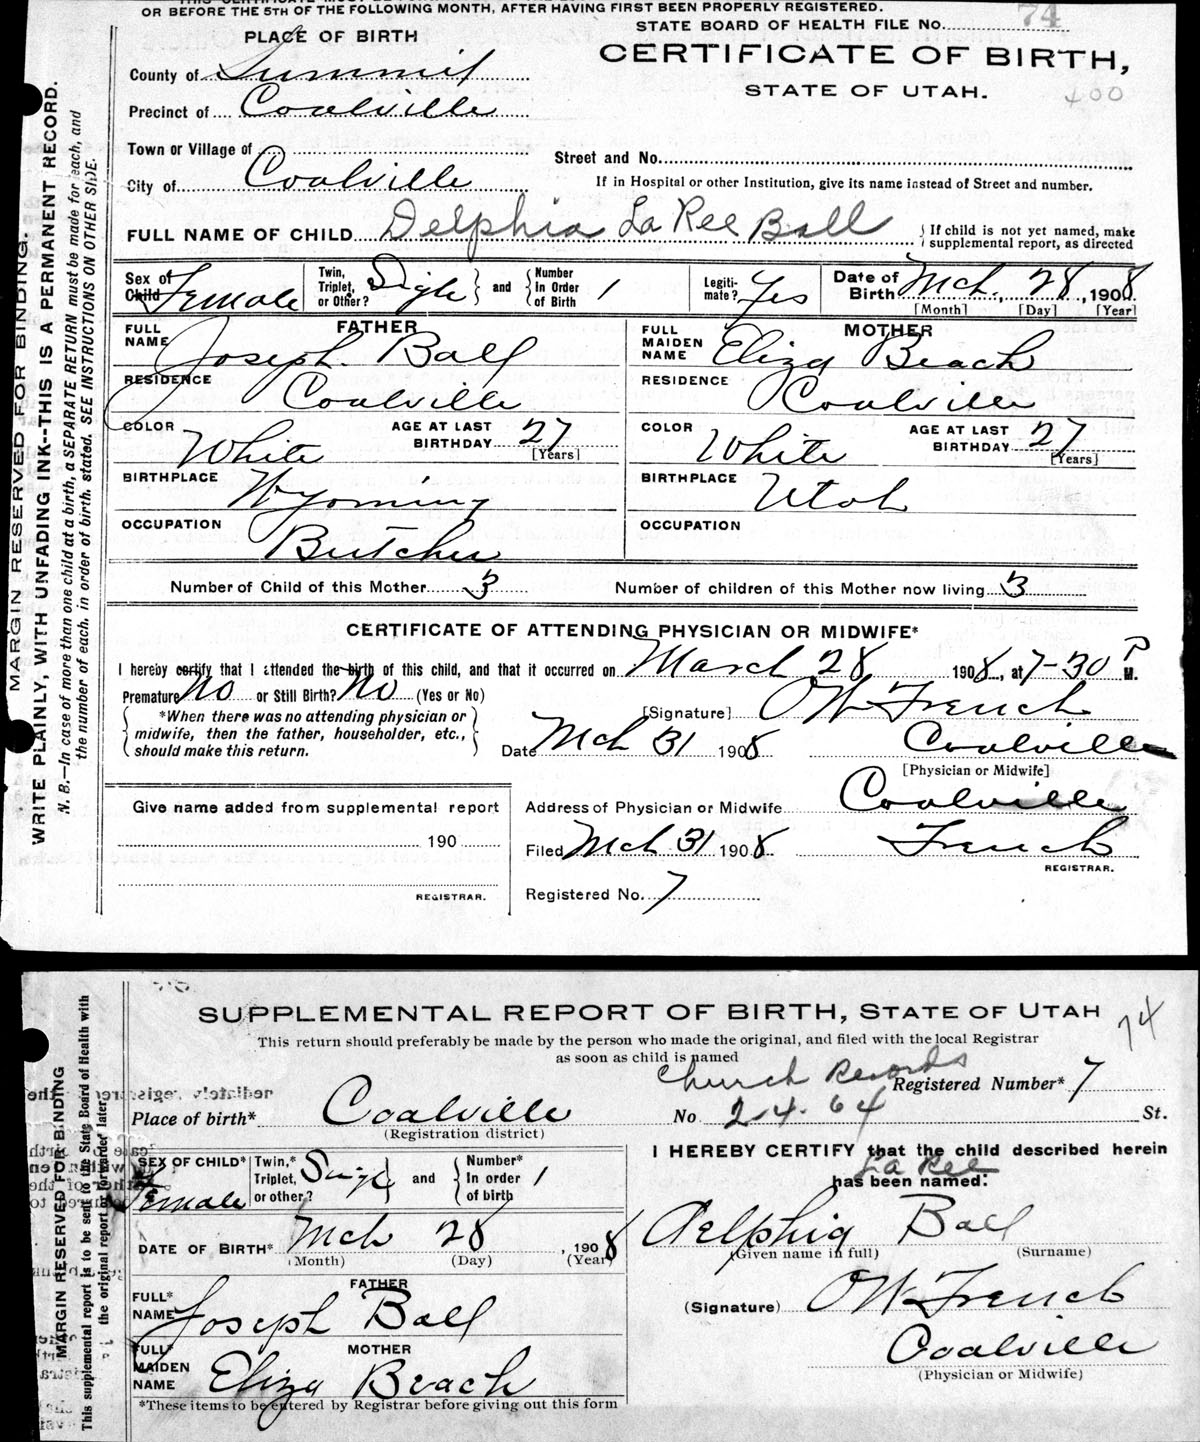 OR BEFORE THE 5TH OF THE FOLLOWING MONTH, AFTER HAVING FIRST BEEN PROPERLY REGISTERED.
STATE BOARD OF HEALTH FILE No. 74
PLACE OF BIRTH
CERTIFICATE OF BIRTH,
STATE OF UTAH.
400
County of Summit
Precinct of Coalville
Town or Village of
City of Coalville
Street and No.
If in Hospital or other Institution, give its name instead of Street and number.
FULL NAME OF CHILD Delphia La Ree Ball
If child is not yet named, make supplemental report, as directed
Sex of Child Female
Twin, Triplet, or Other? Sigle and Number In Order of Birth 1
Legitimate? Yes
Date of Birth Mch. 28, 1908
[Month] [Day] [Year]
FATHER
FULL NAME Joseph Ball
RESIDENCE Coalville
COLOR White AGE AT LAST BIRTHDAY 27 [Years]
BIRTHPLACE Wyoming
OCCUPATION Butcher
MOTHER
FULL MAIDEN NAME Eliza Beach
RESIDENCE Coalville
COLOR White AGE AT LAST BIRTHDAY 27 [Years]
BIRTHPLACE Utah
OCCUPATION
Number of Child of this Mother 3 Number of children of this Mother now living 3
CERTIFICATE OF ATTENDING PHYSICIAN OR MIDWIFE*
I hereby certify that I attended the birth of this child, and that it occurred on March 28 1908, at 7-30 P M.
Premature No or Still Birth? No (Yes or No)
*When there was no attending physician or
midwife, then the father, householder, etc.,
should make this return.
[Signature] OW French
Date Mch 31 1908 Coalville
[Physician or Midwife]
Give name added from supplemental report
190
REGISTRAR.
Address of Physician or Midwife Coalville
Filed Mch 31 1908 French
REGISTRAR.
Registered No. 7
MARGIN RESERVED FOR BINDING.
WRITE PLAINLY, WITH UNFADING INK--THIS IS A PERMANENT RECORD.
N. B.—In case of more than one child at a birth, a SEPARATE RETURN must be made for each, and
the number of each, in order of birth, stated. SEE INSTRUCTIONS ON OTHER SIDE.
SUPPLEMENTAL REPORT OF BIRTH, STATE OF UTAH
74
This return should preferably be made by the person who made the original, and filed with the local Registrar
as soon as child is named
Church Records
Registered Number* 7
Place of birth* Coalville No 2-4-64 St.
(Registration district)
SEX OF CHILD* Female
Twin,* Triplet, or other? Singl and Number* In order of birth 1
I HEREBY CERTIFY that the child described herein
La Ree
has been named:
DATE OF BIRTH* Mch 28, 1908
(Month) (Day) (Year)
Delphia Ball
(Given name in full) (Surname)
FATHER
FULL* NAME Joseph Ball
(Signature) OW French
MOTHER
FULL* MAIDEN NAME Eliza Beach
Coalville
(Physician or Midwife)
*These items to be entered by Registrar before giving out this form
MARGIN RESERVED FOR BINDING
This supplemental report is to be sent to the State Board of Health with
the original report, or forwarded later.